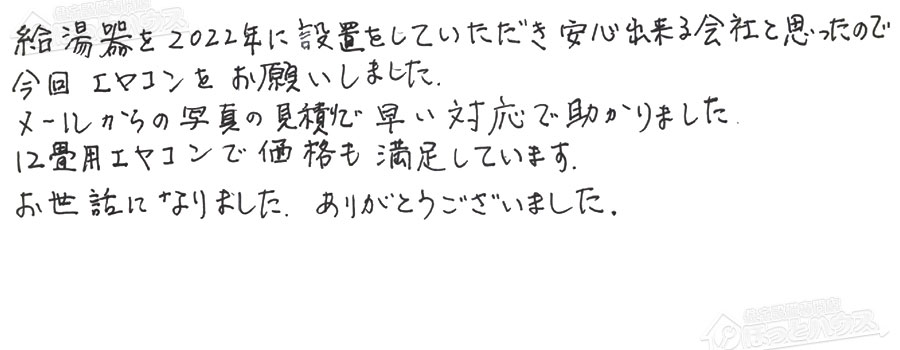 給湯器を2022年に設置をしていただき安心出来る会社と思ったので
今回エヤコンをお願いしました.
メールからの写真の見積りで早い対応で助かりました.
12畳用エヤコンで価格も満足しています.
お世話になりました. ありがとうございました.
ほっとハウス